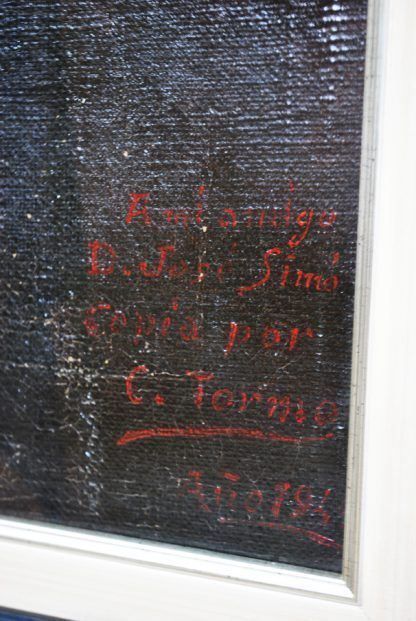 A mi amigo
D. José Simó
Copia por
C. Tormo
Año 194